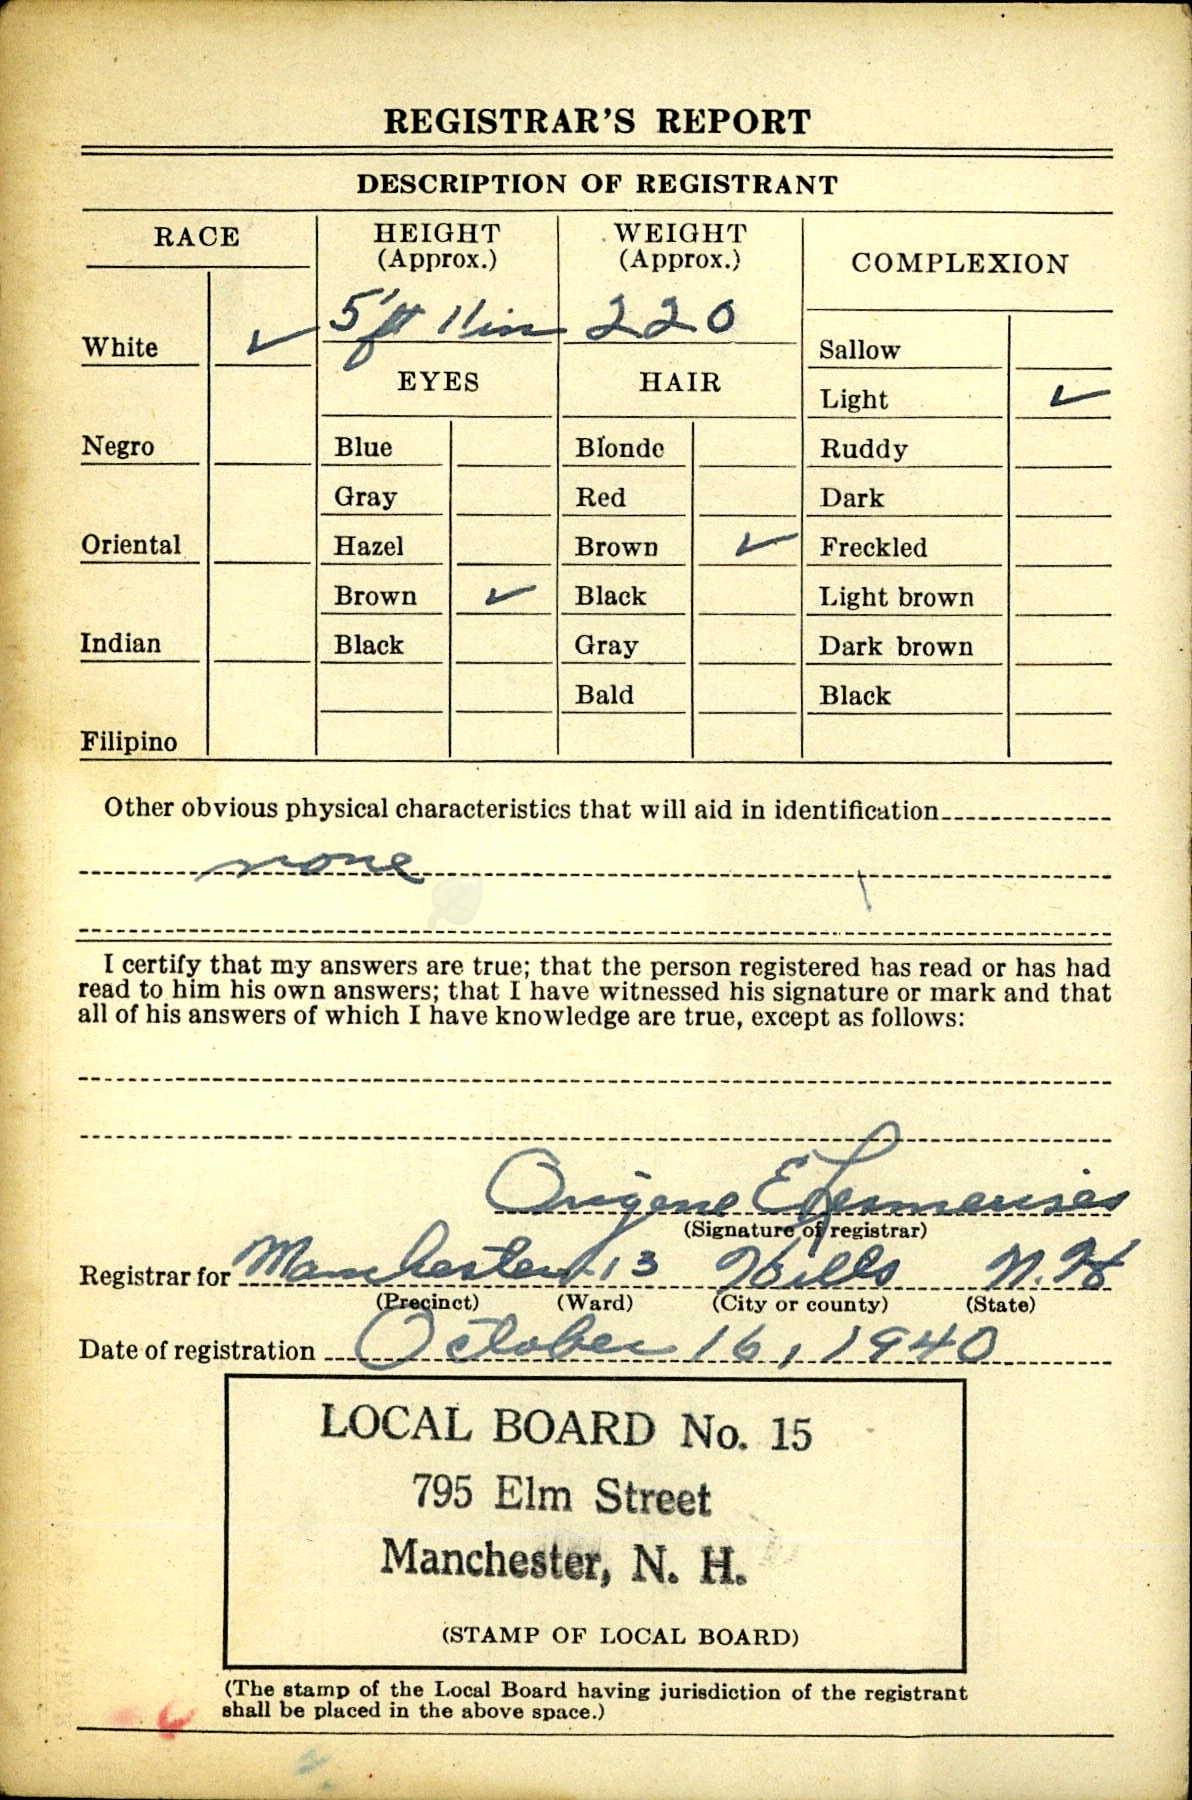 REGISTRAR'S REPORT
DESCRIPTION OF REGISTRANT
RACE
HEIGHT
(Approx.)
WEIGHT
(Approx.)
COMPLEXION
5 ft 11 in
220
White ✓
Sallow
EYES
HAIR
Light ✓
Negro
Blue
Blonde
Ruddy
Gray
Red
Dark
Oriental
Hazel
Brown ✓
Freckled
Brown ✓
Black
Light brown
Indian
Black
Gray
Dark brown
Bald
Black
Filipino
Other obvious physical characteristics that will aid in identification
none
I certify that my answers are true; that the person registered has read or has had
read to him his own answers; that I have witnessed his signature or mark and that
all of his answers of which I have knowledge are true, except as follows:
Origene E Lesmerises
(Signature of registrar)
Registrar for Manchester 13 Hills N.H
(Precinct) (Ward) (City or county) (State)
Date of registration October 16, 1940
LOCAL BOARD No. 15
795 Elm Street
Manchester, N. H.
(STAMP OF LOCAL BOARD)
(The stamp of the Local Board having jurisdiction of the registrant
shall be placed in the above space.)